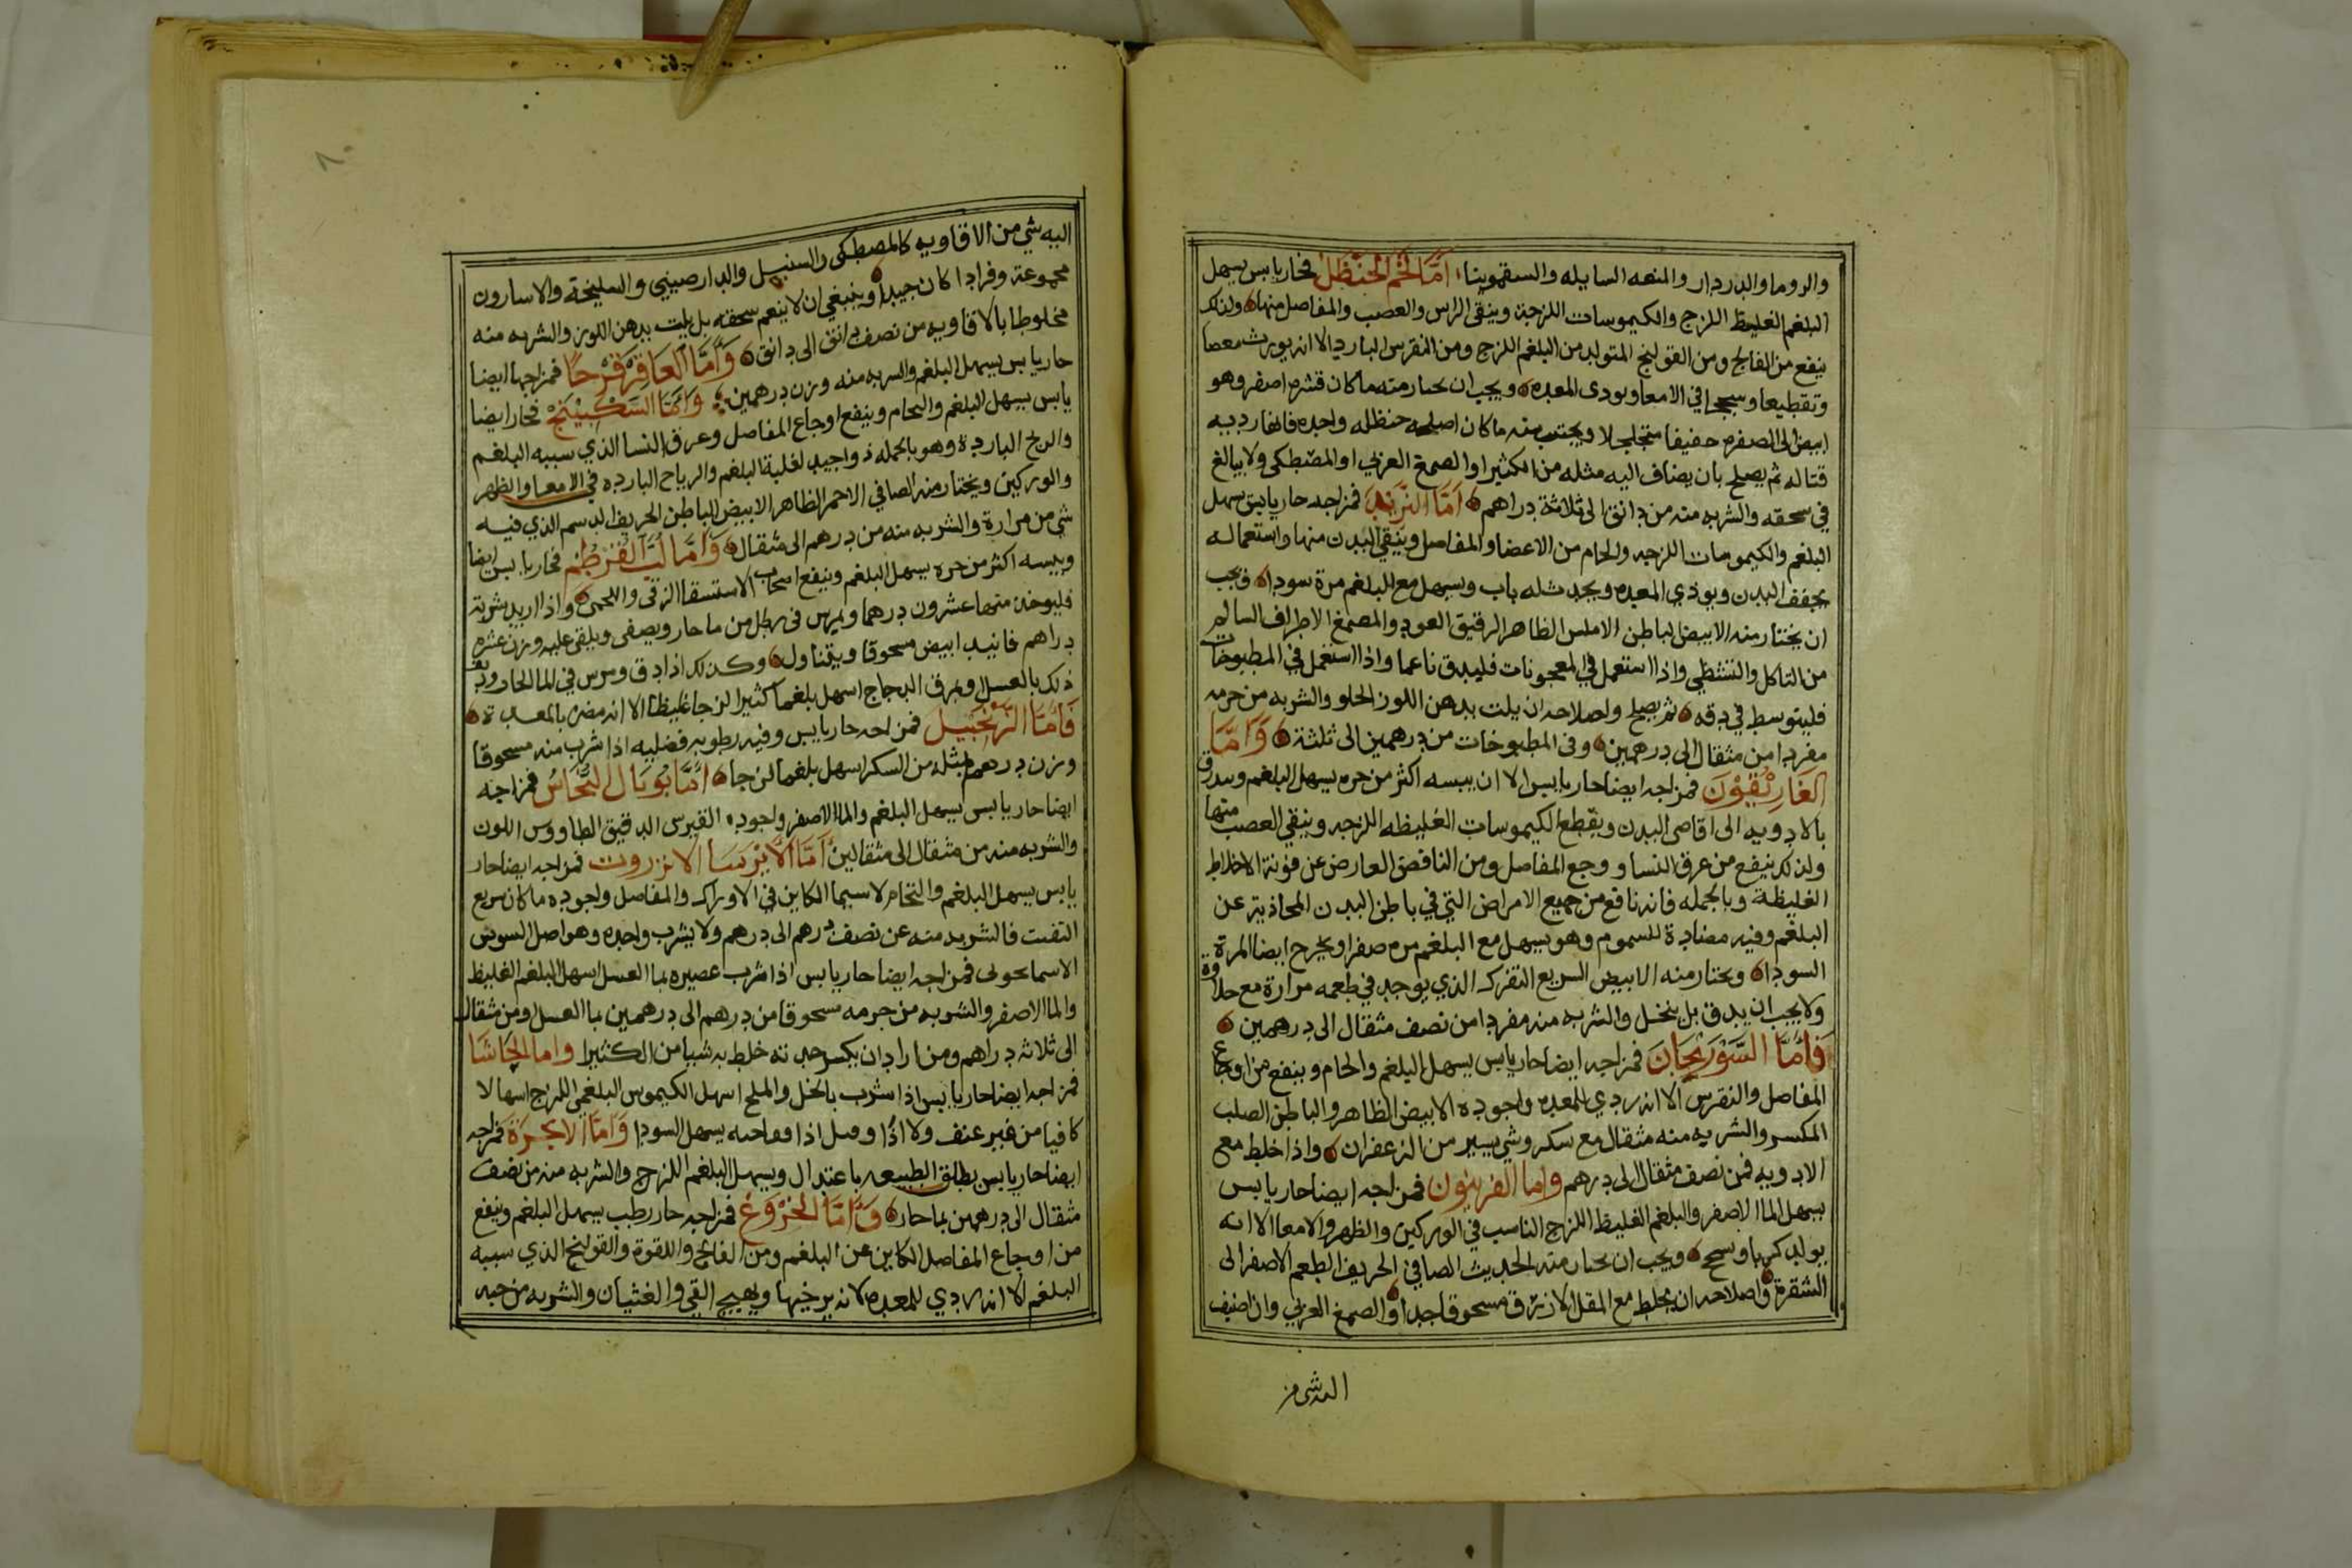 والروما والدردار والمنعه السايله والسقمونيا اَمَّا شَحْم الحَنْظَل فحار يابس يسهل
البلغم الغليظ اللزج والكيموسات اللزجة وينقى الراس والعصب والمفاصل منها ولذلك
ينفع من الفالج ومن القولنج المتولد من البلغم اللزج ومن النقرس البارد الا انه يورث مغصا
وتقطيعا وسحجا في الامعا ويودى المعده ويجب ان يختار منه ما كان قشره اصفر وهو
ابيض الى الصفره خفيفا متخلخلا ويجتنب منه ما كان اصله حنظله واحده فانها رديه
قتاله ثم يصلح بان يضاف اليه مثله من الكثيرا والصمغ العربي او المصطكى ولا يبالغ
في سحقه والشربه منه من دانق الى ثلاثة دراهم اَمَّا التُّربَد فمزاجه حار يابس يسهل
البلغم والكيموسات اللزجه والخام من الاعضا والمفاصل وينقي البدن منها واستعماله
يجفف البدن ويوذي المعده ويسهل مع البلغم مرة سودا ويجب
ان يختار منه الابيض الباطن الاملس الظاهر الرقيق العود والمصمغ الاطراف السالم
من التاكل والتشظي واذا استعمل في المعجونات فليدق ناعما واذا استعمل في المطبوخات
فليتوسط في دقه ثم يصلح واصلاحه ان يلت بدهن اللوز الحلو والشربه من جرمه
مفردا من مثقال الى درهمين وفى المطبوخات من درهمين الى ثلثة وَاَمَّا
الغَارِيْقُوْنَ فمزاجه ايضا حار يابس الا ان يبسه اكثر من حره يسهل البلغم ويبدرق
بالادويه الى اقاصى البدن ويقطع الكيموسات الغليظه اللزجه وينقي العصب منها
ولذلك ينفع من عرق النسا ووجع المفاصل ومن النافض العارض عن عفونة الاخلاط
الغليظة وبالجمله فانه نافع من جميع الامراض التي في باطن البدن الحادثة عن
البلغم وفيه مضادة للسموم وهو يسهل مع البلغم مره صفرا ويخرج ايضا المرة
السودا ويختار منه الابيض السريع التفرك الذي يوجد في طعمه مرارة مع حلاوة
ولا يجب ان يدق بل ينخل والشربه منه مفردا من نصف مثقال الى درهمين
فَاَمَّا السَّوْرِنْجَانَ فمزاجه ايضا حار يابس يسهل البلغم والخام وينفع من اوجاع
المفاصل والنقرس الا انه ردي للمعده واجوده الابيض الظاهر والباطن الصلب
المكسر والشربه منه مثقال مع سكر وشي يسير من الزعفران واذا خلط مع
الادويه فمن نصف مثقال الى درهم واما الفربيون فمزاجه ايضا حار يابس
يسهل الما الاصفر والبلغم الغليظ اللزج الناسب في الوركين والظهر والامعا الا انه
يولد كربا وسحج ويجب ان يختار منه الحديث الصافي الحريف الطعم الاصفر الى
الشقرة واصلاحه ان يخلط مع المقل الازرق مسحوقا جدا والصمغ العربي وان اضيف
اليه شي من
٨٠
اليه شي من الافاويه كالمصطكى والسنبل والدارصيني والسليخة والاسارون
مجموعة وفرادا كان جيدا وينبغي ان لا ينعم سحقه بل يلت بدهن اللوز والشربه منه
مخلوطا بالافاويه من نصف دانق الى دانق وَاَمَّا العَاقِرْقَرْحًا فمزاجها ايضا
حار يابس يسهل البلغم والشربه منه وزن درهمين وَاَمَّا السَّكْبِيْنَج فحار ايضا
يابس يسهل البلغم والخام وينفع اوجاع المفاصل وعرق النسا الذي سببه البلغم
والريح الباردة وهو بالجمله دوا جيد لغلبة البلغم والرياح البارده في الامعا والظهر
والوركين ويختار منه الصافي الاحمر الظاهر الابيض الباطن الحريف الدسم الذي فيه
شي من مرارة والشربه منه من درهم الى مثقال وَاَمَّا لُبّ القُرْطُم فحار يابس ايضا
ويبسه اكثر من حره يسهل البلغم وينفع اصحاب الاستسقا الزقى واللحمى واذا اريد شربه
فليوخذ منها عشرون درهما ويمرس فى رطل من ما حار ويصفى ويلقى عليه وزن عشره
دراهم فانيد ابيض مسحوقا ويتناول وكذلك اذا دق ومرس في الما الحار
ذلك بالعسل ومرق الدجاج اسهل بلغما كثيرا لزجا غليظا الا انه مضر بالمعدة
فَاَمَّا الزَّنْجَبِيْلَ فمزاجه حار يابس وفيه رطوبه فضليه اذا شرب منه مسحوقا
وزن درهم بمثله من السكر اسهل بلغما لزجا اَمَّا تُوْبَال النُّحَاس فمزاجه
ايضا حار يابس يسهل البلغم والما الاصفر واجوده القبرس الدقيق الطاووس اللون
والشربه منه من مثقال الى مثقالين اَمَّا الاَيْرسَا الانزروت فمزاجه ايضا حار
يابس يسهل البلغم والخام لا سيما الكاين في الاوراك والمفاصل واجوده ما كان سريع
التفتت فالشربه منه عن نصف درهم الى درهم ولا يشرب واحده وهو اصل السوسن
الاسمانجونى فمزاجه ايضا حار يابس اذا شرب عصيره بما العسل اسهل البلغم الغليظ
والما الاصفر والشربه من جرمه مسحوقا من درهم الى درهمين بما العسل ومن مثقال
الى ثلاثه دراهم ومن اراد ان يكسر حدته خلط به شيا من الكثيرا واما الحَاشَا
فمزاجه ايضا حار يابس اذا شرب بالخل والملح اسهل الكيموس البلغمي اللزج اسهالا
كافيا من غير عنف ولا اذا يسهل السودا وَاَمَّا الانجُرَة فمزاجه
ايضا حار يابس يطلق الطبيعه باعتدال ويسهل البلغم اللزج والشربه منه من نصف
مثقال الى درهمين بما حار وَاَمَّا الخِرْوَع فمزاجه حار رطب يسهل البلغم وينفع
من اوجاع المفاصل الكاين عن البلغم ومن الفالج واللقوة والقولنج الذي سببه
البلغم الا انه ردي للمعده لانه يرخيها ويهيج القي والغثيان والشربه من حبه